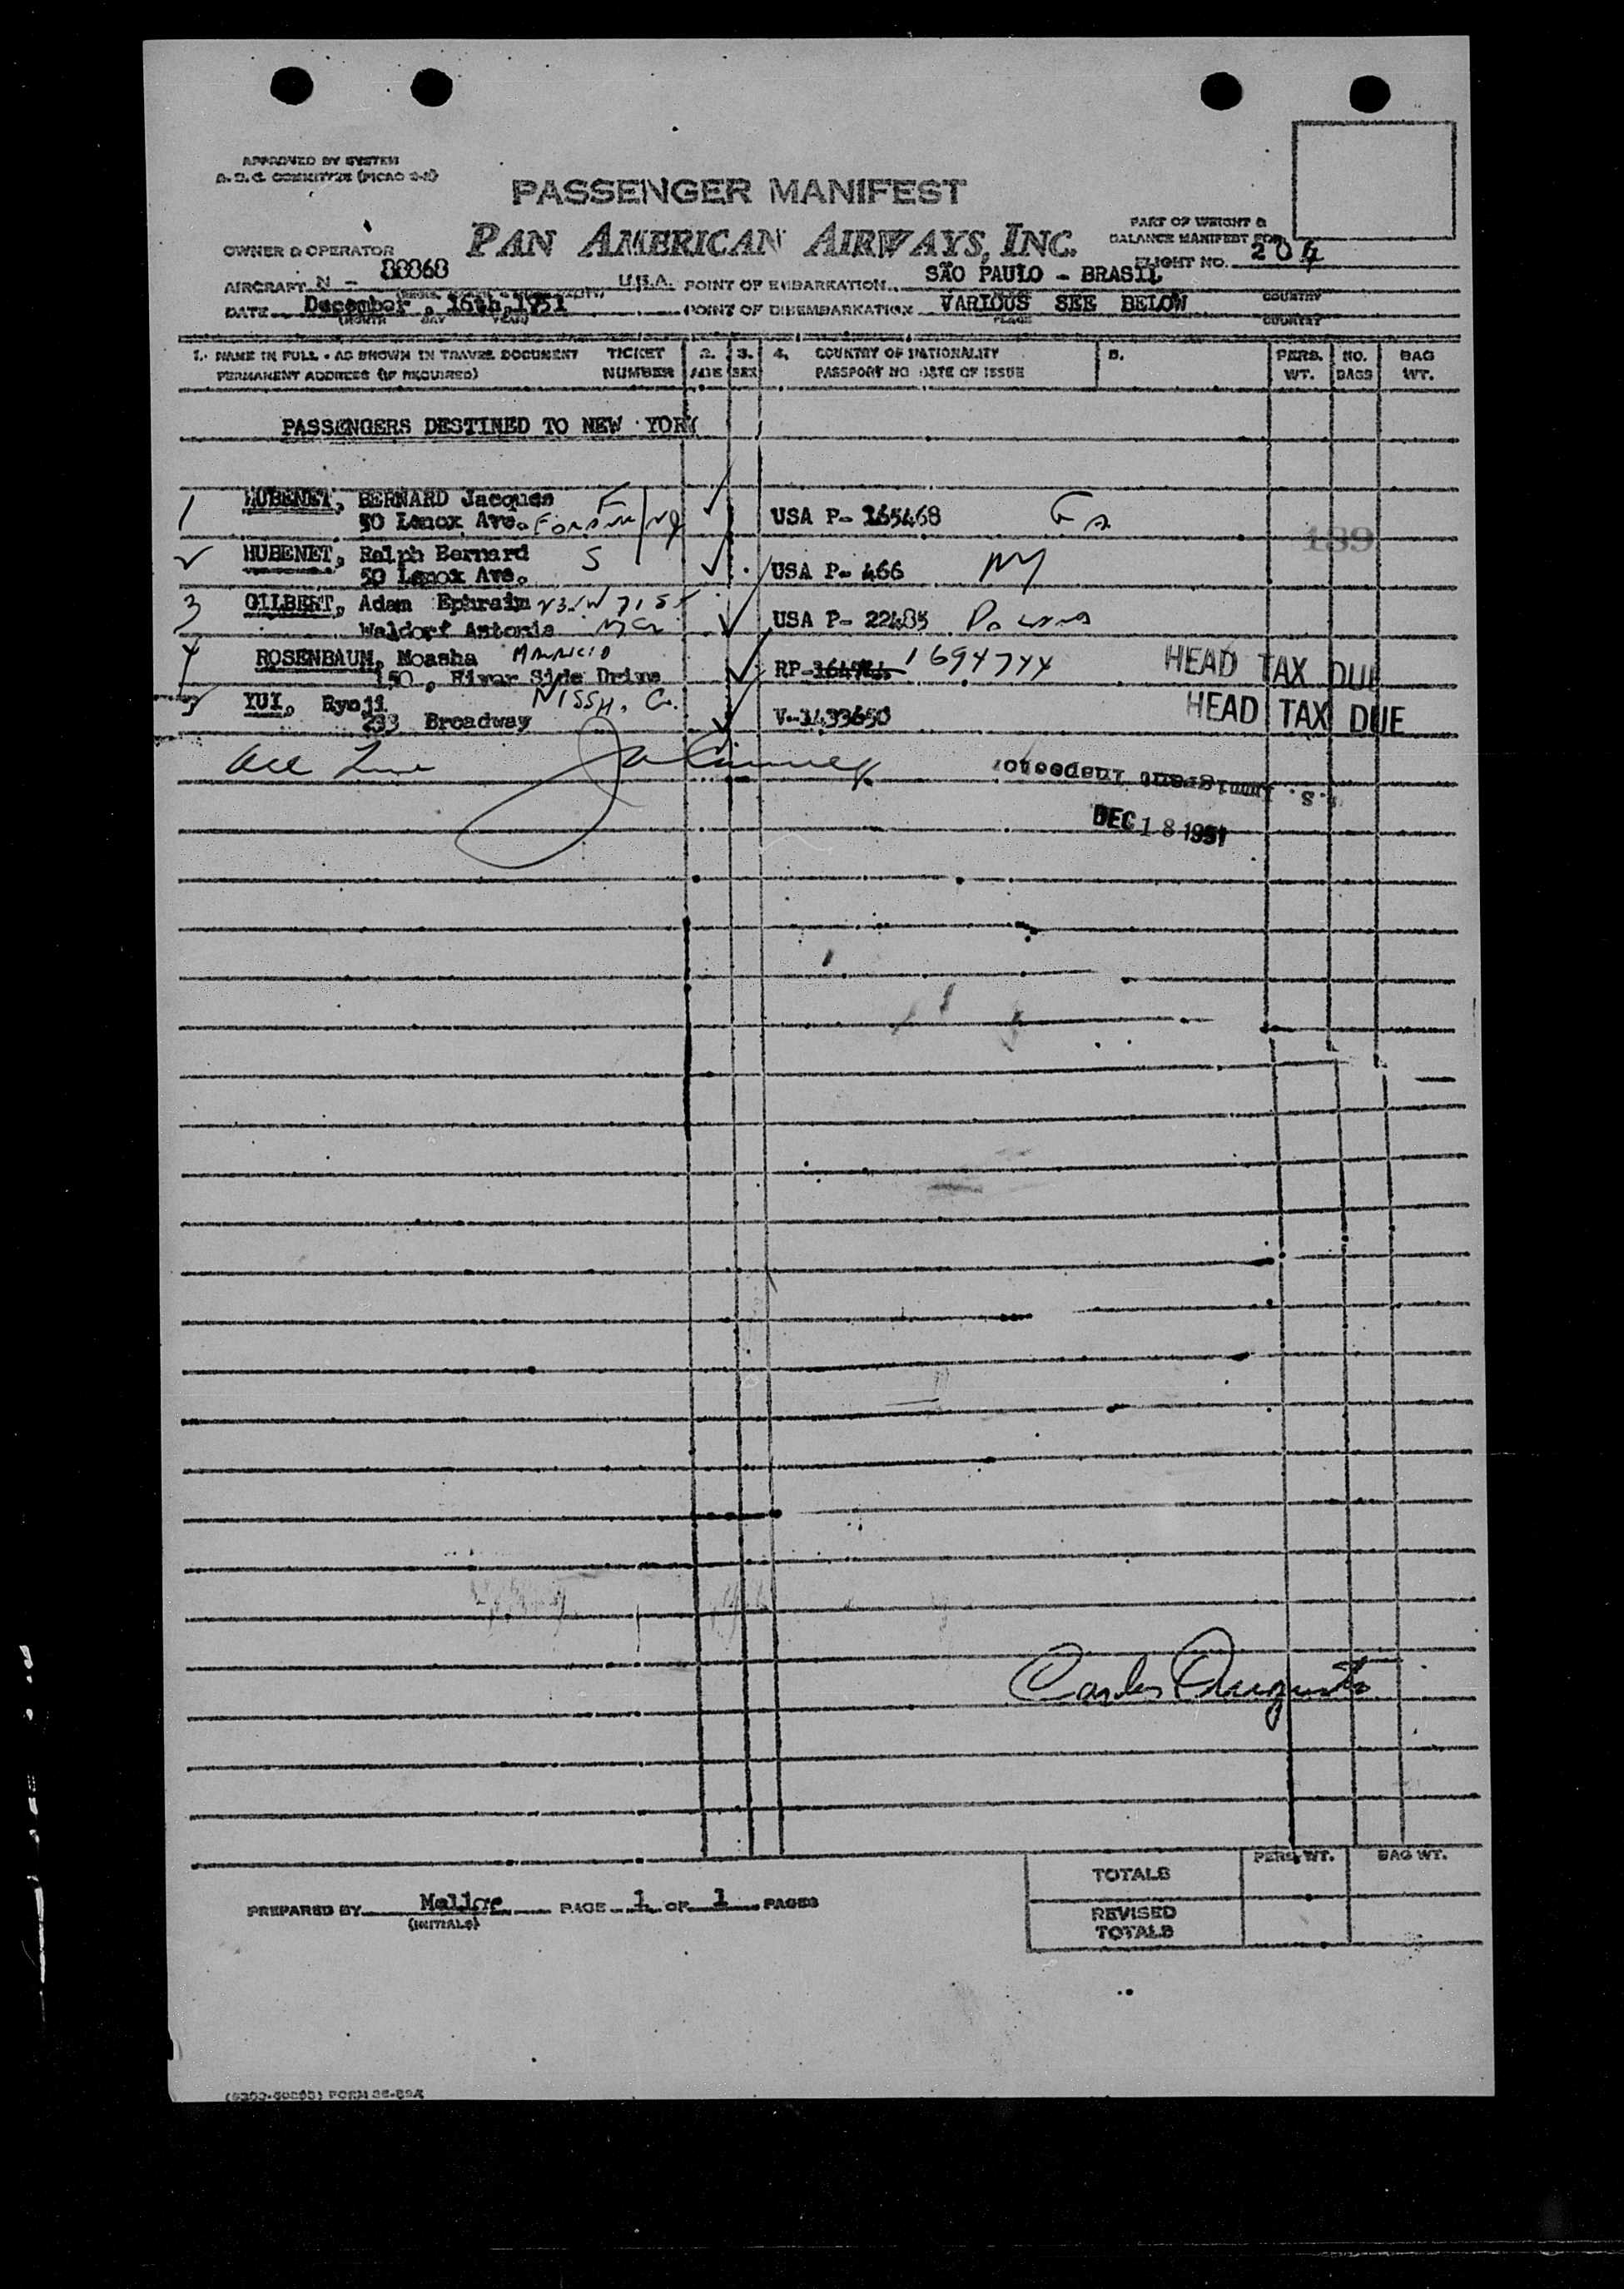 APPROVED BY SYSTEM
PASSENGER MANIFEST
PAN AMERICAN AIRWAYS, INC.
PART OF WEIGHT &
BALANCE MANIFEST FOR
FLIGHT NO. 204
OWNER & OPERATOR
AIRCRAFT N - 88868 U.S.A. POINT OF EMBARKATION SÃO PAULO - BRASIL
DATE December, 16th, 1951 POINT OF DISEMBARKATION VARIOUS SEE BELOW
(MONTH DAY YEAR) PLACE COUNTRY
1. NAME IN FULL - AS SHOWN IN TRAVEL DOCUMENT TICKET 2. 3. 4. COUNTRY OF NATIONALITY 5. PERS. NO. BAG
PERMANENT ADDRESS (IF REQUIRED) NUMBER AGE SEX PASSPORT NO DATE OF ISSUE WT. BAGS WT.
PASSENGERS DESTINED TO NEW YORK
1 HUBENET, BERNARD Jacques F
50 Lenox Ave. USA P- 165468
189
HUBENET, Ralph Bernard S
50 Lenox Ave. USA P- 466
3 GILBERT, Adam Ephraim
Waldorf Astoria USA P- 22485
4 ROSENBAUM, Moasha MAURICIO
150, River Side Drive RP- 1694744 HEAD TAX DUE
5 YUI, Ryoji NISSH. Co.
233 Broadway V-1433650 HEAD TAX DUE
U.S. Immigrant Inspector
DEC 18 1951
Carlos Augusto
TOTALS PERS. WT. BAG WT.
PREPARED BY PAGE 1 OF 1 PAGES
(INITIALS)
REVISED
TOTALS